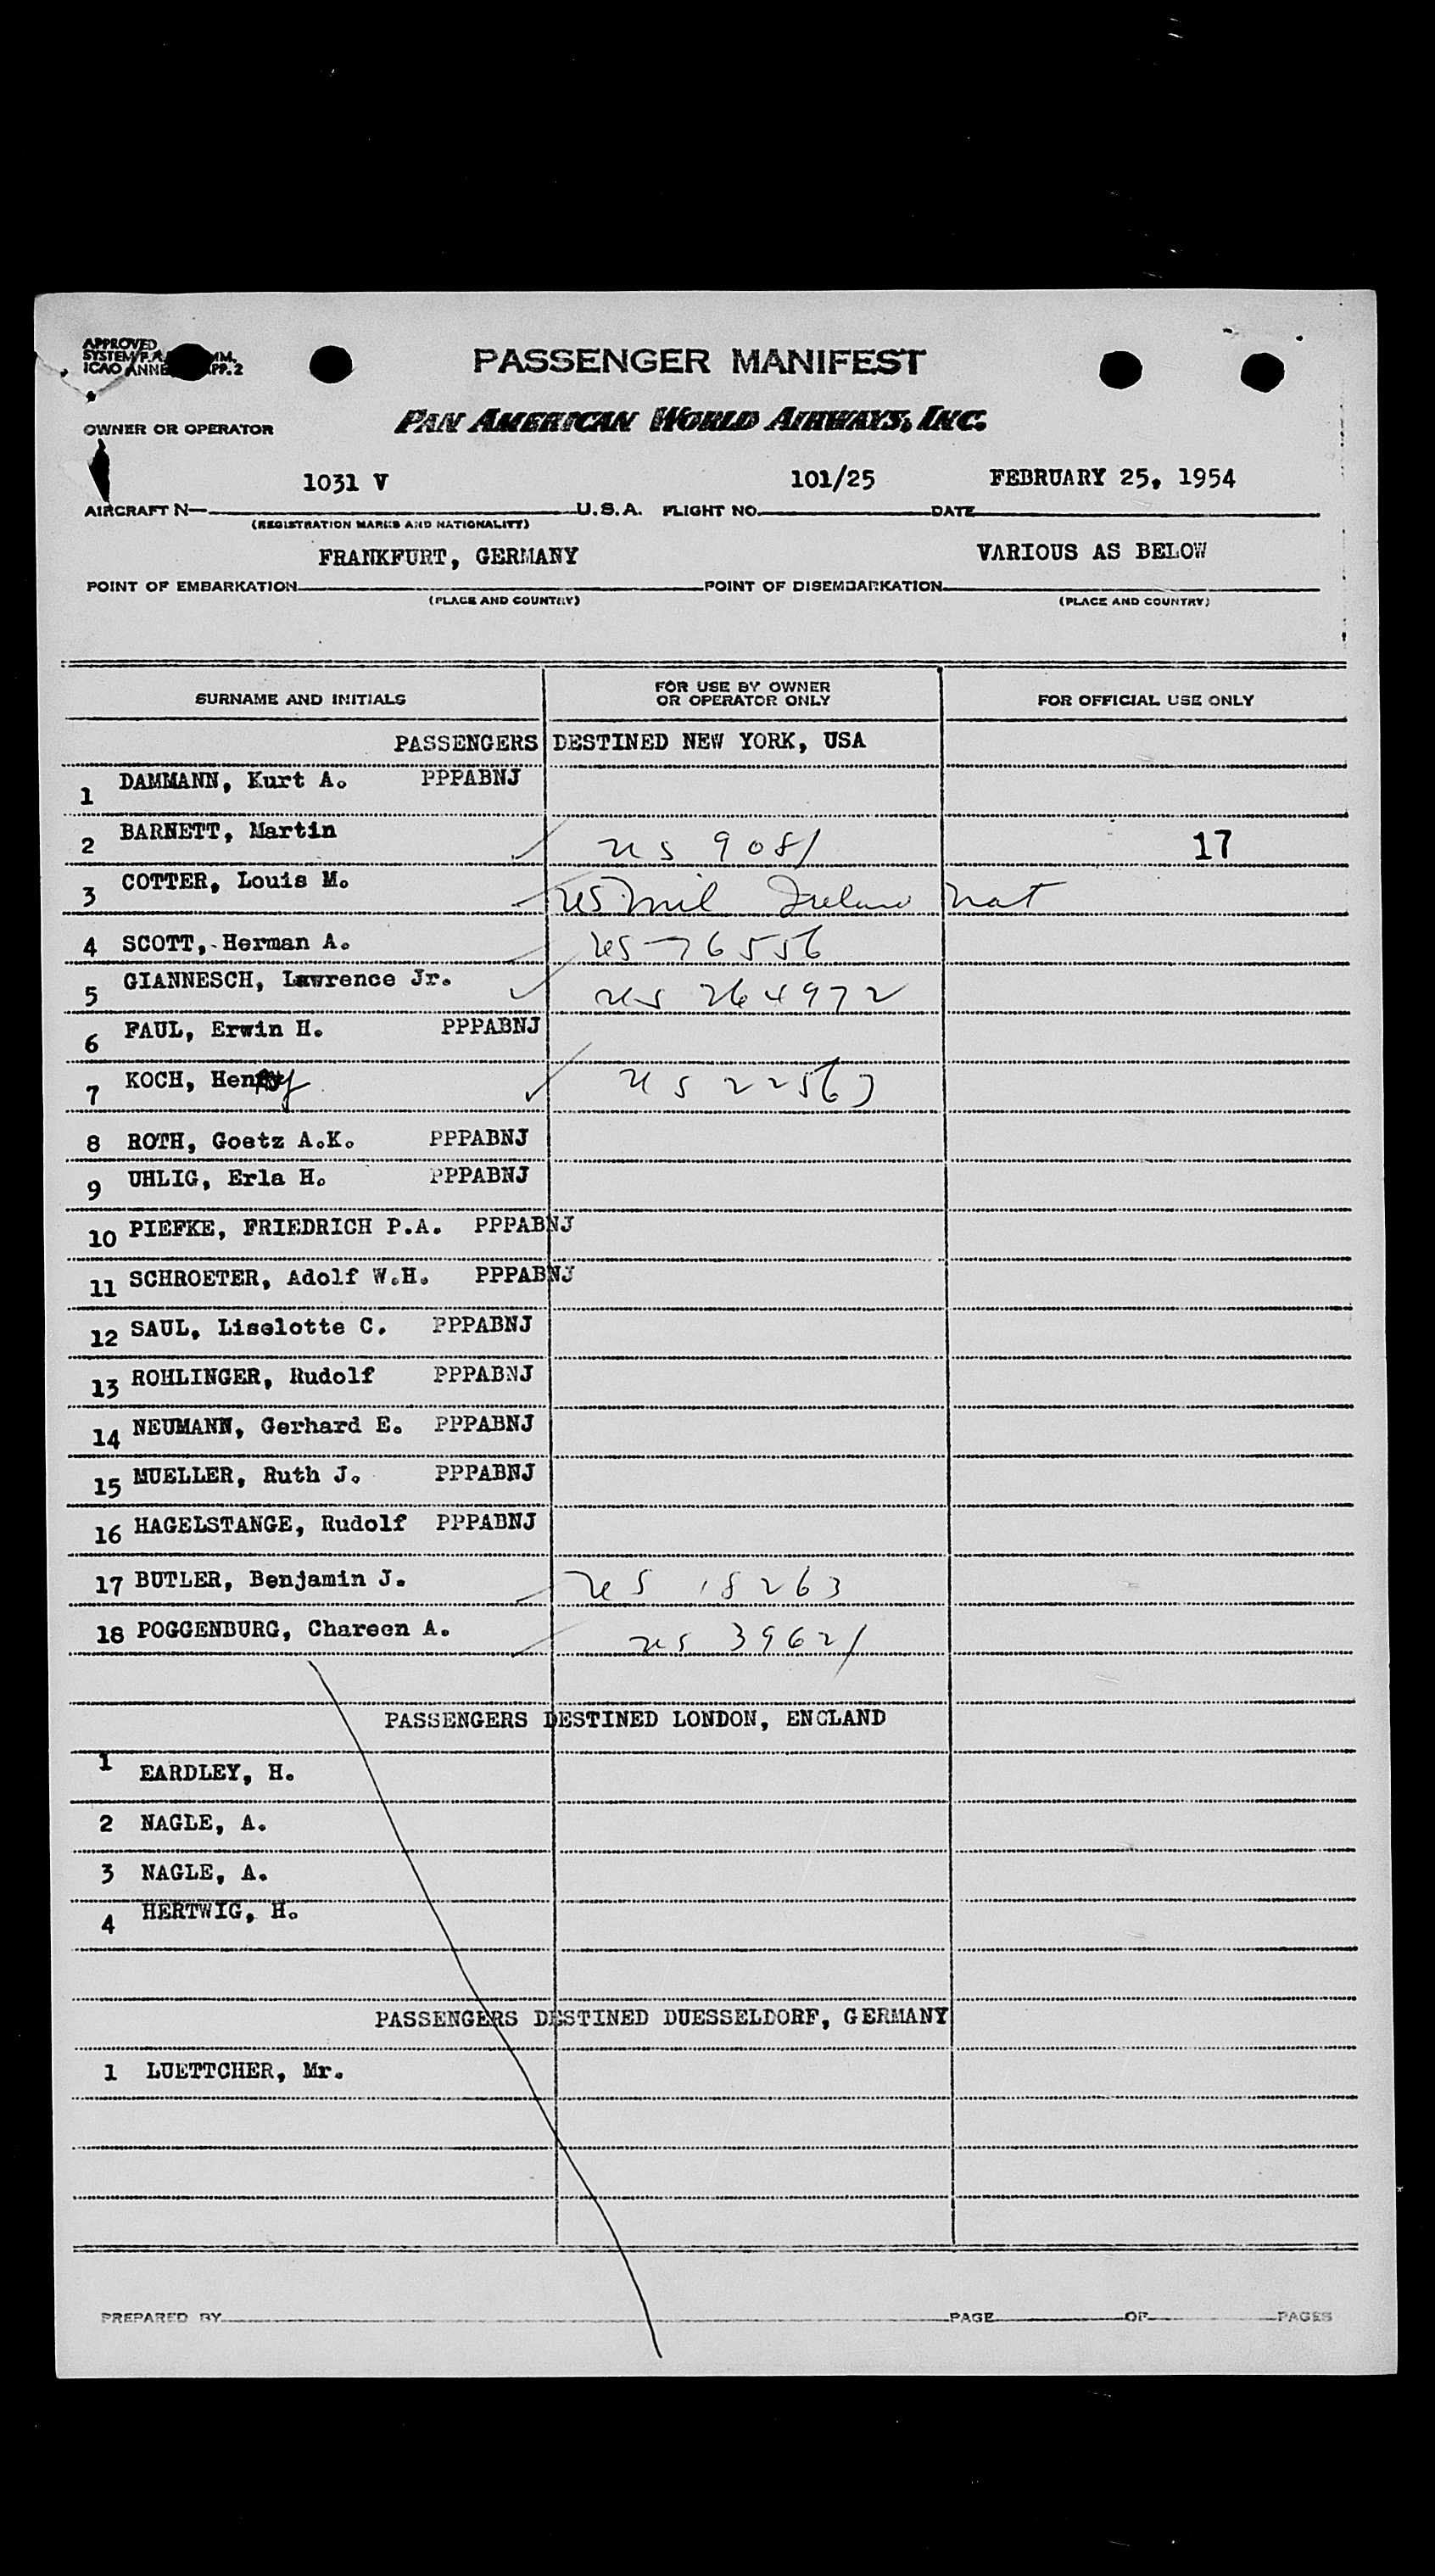 APPROVED
SYSTEM/F.A. MM.
ICAO ANNE PP. 2
PASSENGER MANIFEST
OWNER OR OPERATOR PAN AMERICAN WORLD AIRWAYS, INC.
1031 V 101/25 FEBRUARY 25, 1954
AIRCRAFT N— U.S.A. FLIGHT NO. DATE
(REGISTRATION MARKS AND NATIONALITY)
FRANKFURT, GERMANY VARIOUS AS BELOW
POINT OF EMBARKATION POINT OF DISEMBARKATION
(PLACE AND COUNTRY) (PLACE AND COUNTRY)
SURNAME AND INITIALS FOR USE BY OWNER OR OPERATOR ONLY FOR OFFICIAL USE ONLY
PASSENGERS DESTINED NEW YORK, USA
1 DAMMANN, Kurt A. PPPABNJ
2 BARNETT, Martin US 9081 17
3 COTTER, Louis M. US mil Ireland nat
4 SCOTT, Herman A. US 76556
5 GIANNESCH, Lawrence Jr. US 264972
6 FAUL, Erwin H. PPPABNJ
7 KOCH, Henry US 22563
8 ROTH, Goetz A.K. PPPABNJ
9 UHLIG, Erla H. PPPABNJ
10 PIEFKE, FRIEDRICH P.A. PPPABNJ
11 SCHROETER, Adolf W.H. PPPABNJ
12 SAUL, Liselotte C. PPPABNJ
13 ROHLINGER, Rudolf PPPABNJ
14 NEUMANN, Gerhard E. PPPABNJ
15 MUELLER, Ruth J. PPPABNJ
16 HAGELSTANGE, Rudolf PPPABNJ
17 BUTLER, Benjamin J. US 18263
18 POGGENBURG, Chareen A. US 39621
PASSENGERS DESTINED LONDON, ENGLAND
1 EARDLEY, H.
2 NAGLE, A.
3 NAGLE, A.
4 HERTWIG, H.
PASSENGERS DESTINED DUESSELDORF, GERMANY
1 LUETTCHER, Mr.
PREPARED BY PAGE OF PAGES